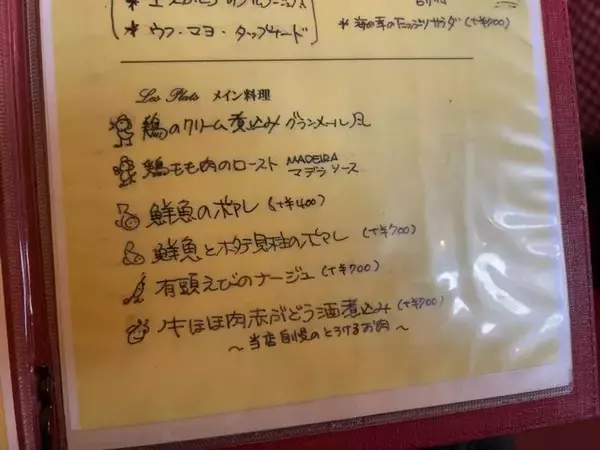 * ウフ・マヨ・タップナード
* 海の幸のたっぷりサラダ (+¥700)
Les Plats メイン料理
鶏のクリーム煮込み グランメール風
鶏モモ肉のロースト MADEIRA マデラソース
鮮魚のポアレ (+¥400)
鮮魚とホタテ貝柱のポアレ (+¥700)
有頭えびのナージュ (+¥700)
牛ほほ肉赤ぶどう酒煮込み (+¥700)
～当店自慢のとろけるお肉～